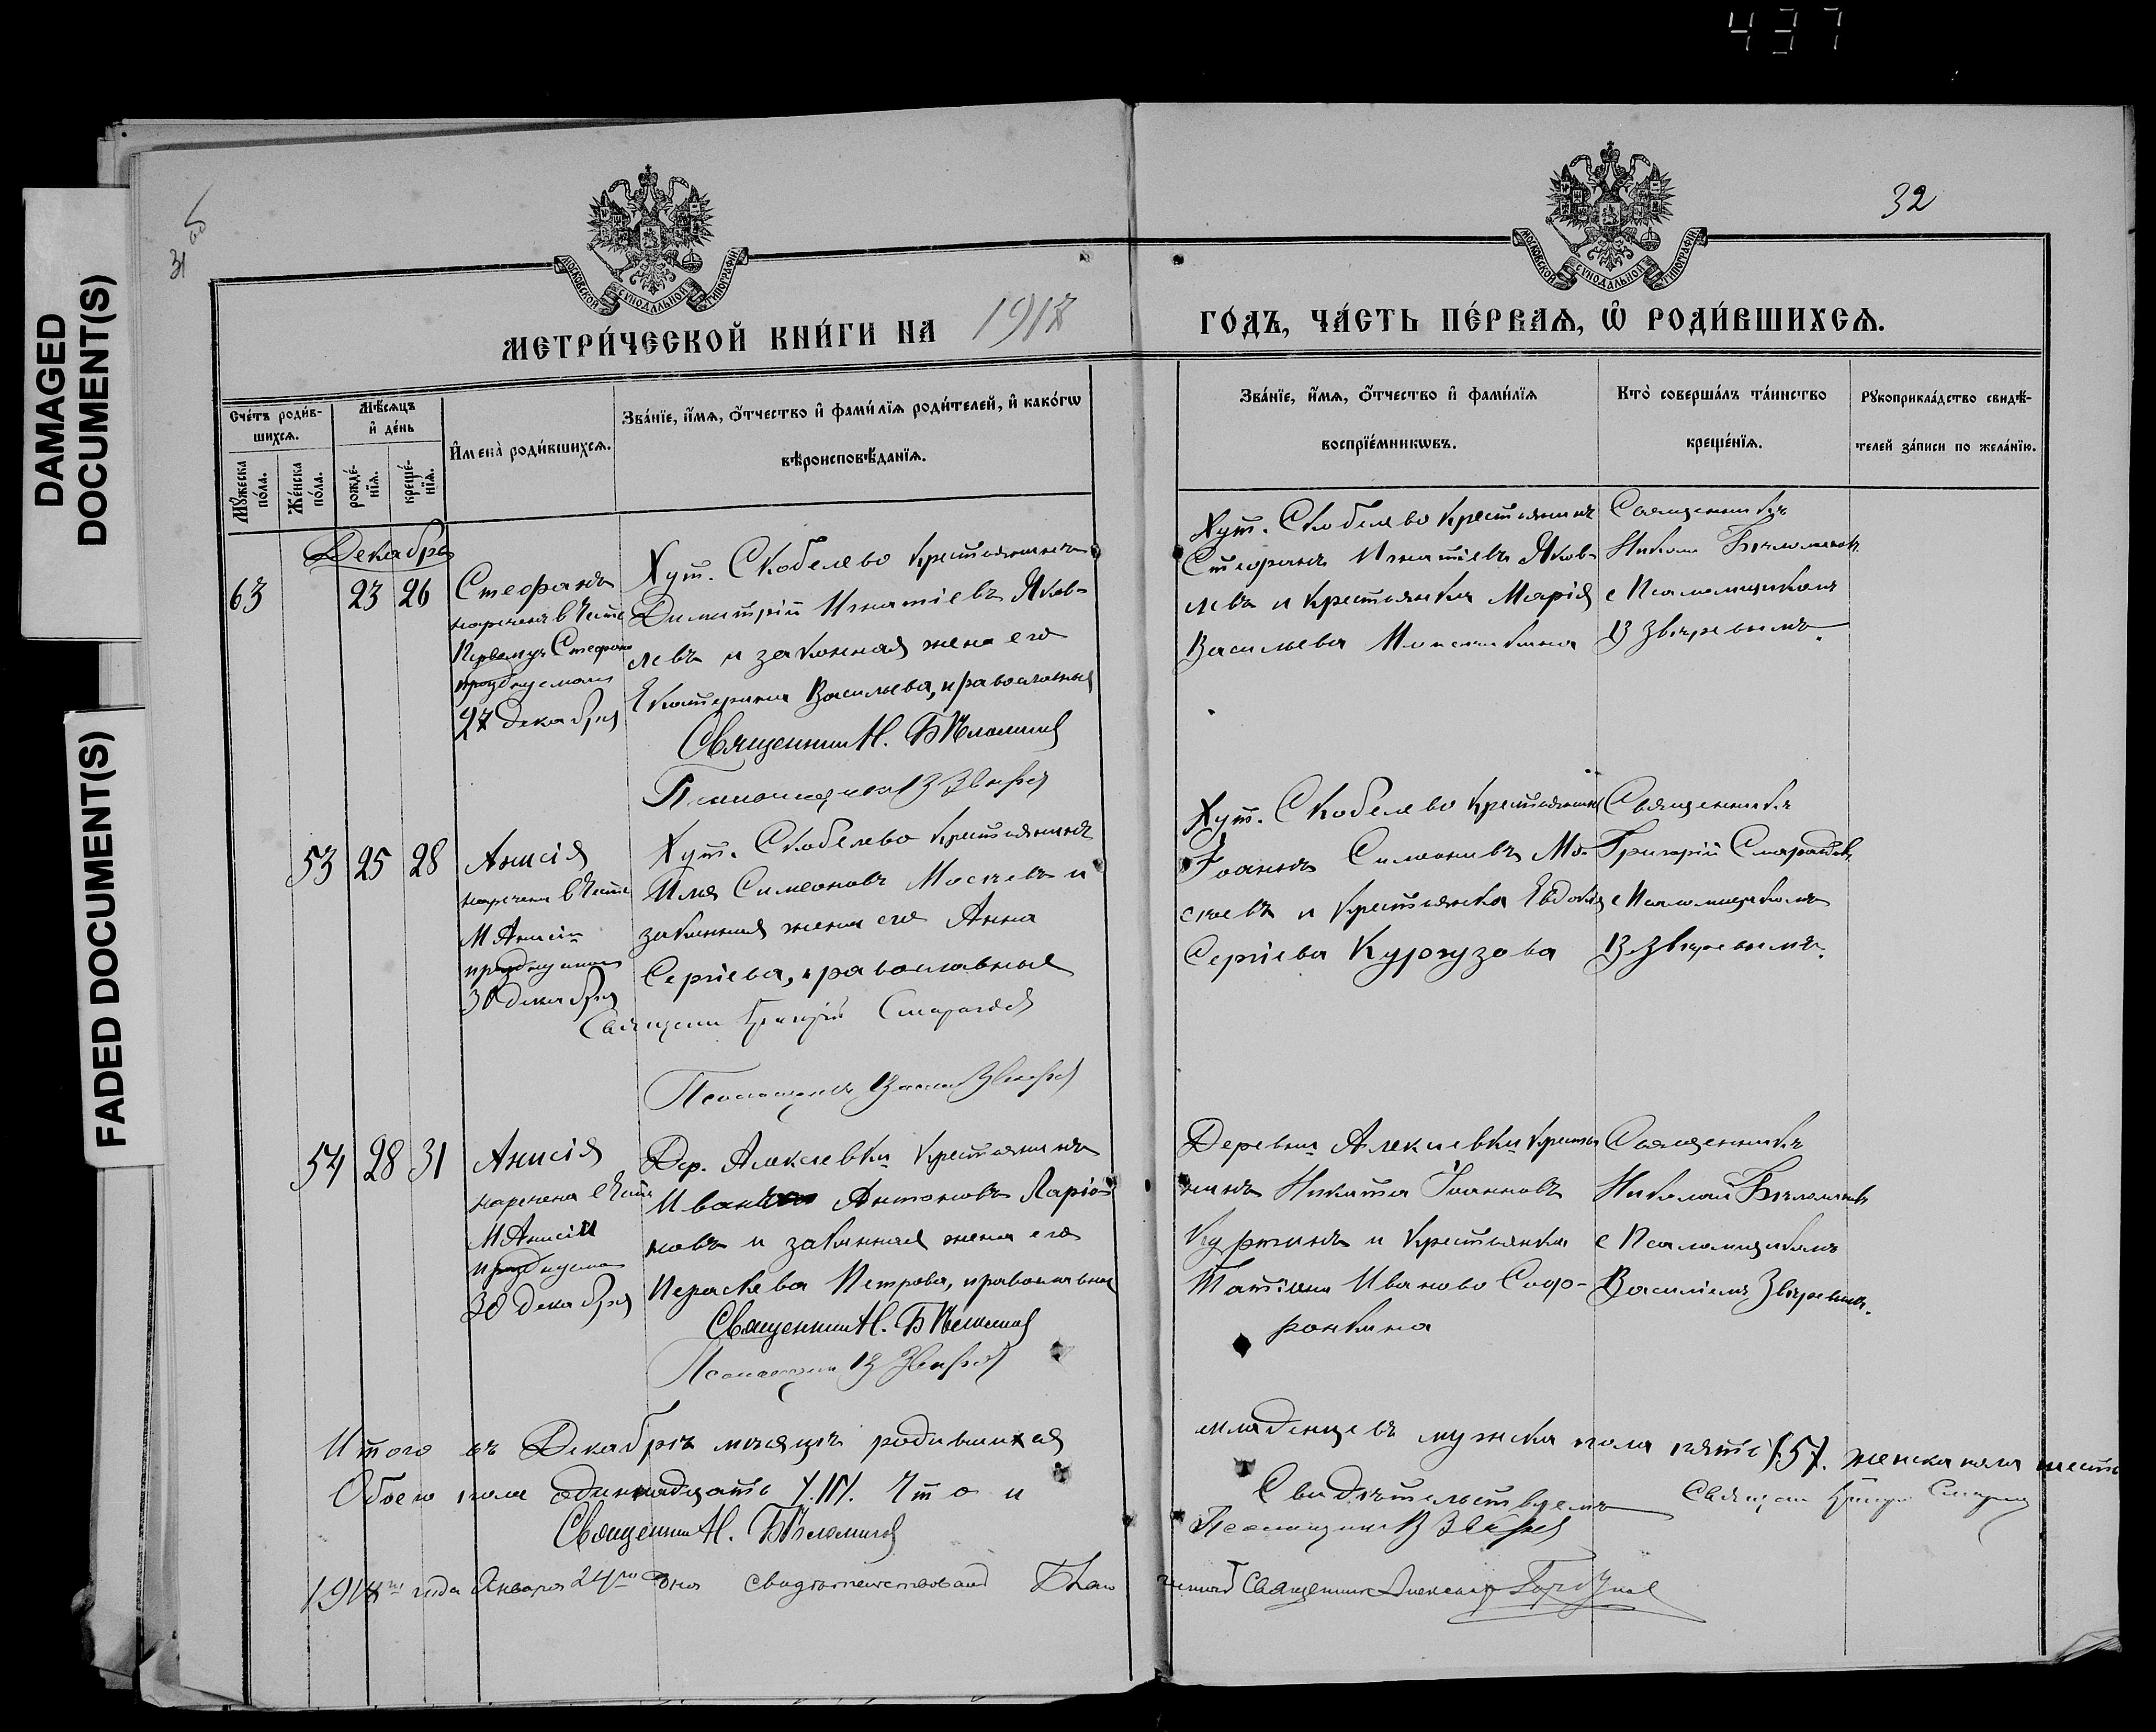 437
DAMAGED
DOCUMENT(S)
FADED DOCUMENT(S)
31 об
32
МОСКОВСКОЙ СѴНОДАЛЬНОЙ ТИПОГРАФІИ
МОСКОВСКОЙ СѴНОДАЛЬНОЙ ТИПОГРАФІИ
МЕТРИ́ЧЕСКОЙ КНИ́ГИ НА 1917
ГО́ДЪ, ЧА́СТЬ ПЕ́РВАѦ, Ѡ҆ РОДИ́ВШИХСѦ.
Сче́тъ роди́в-
шихсѧ.
Мꙋ́жеска
по́ла.
Же́нска
по́ла.
Мѣ́сѧцъ
и҆ де́нь
рожде́-
нїѧ.
креще́-
нїѧ.
И҆мена̀ роди́вшихсѧ.
Зва́нїе, и҆́мѧ, о҆́тчество и҆ фами́лїѧ роди́телей, и҆ како́гѡ
вѣроисповѣ́данїѧ.
Зва́нїе, и҆́мѧ, о҆́тчество и҆ фами́лїѧ
воспрїе́мникѡвъ.
Кто̀ соверша́лъ та́инство
креще́нїѧ.
Рꙋкоприкла́дство свидѣ́-
телей за́писи по жела́нїю.
Декабрь
63
23
26
Стефанъ
нареченъ въ честь
Первомуч Стефана
празднуемаго
27 декабря
Хут. Скобелево крестьянинъ
Димитрій Игнатіевъ Яков-
левъ и законная жена его
Екатерина Васильева, православные
Священник Н. Бѣломытцев
Псаломщикъ В Зверев
Хут. Скобелево крестьянинъ
Стефанъ Игнатіевъ Яков-
левъ и крестьянка Марія
Васильева
Священникъ
Николай
с Псаломщикомъ
В Звѣревымъ.
53
25
28
Анисія
наречена въ честь
М Анисіи
празднуемой
30 декабря
Хут. Скобелево крестьянинъ
Илья Симеоновъ Мосеевъ и
законная жена его Анна
Сергіева, православные
Священ Григрій
Псаломщикъ Васил Зверев
Хут. Скобелево крестьянинъ
Іоаннъ Симеоновъ Мо-
сеевъ и крестьянка Евдокія
Сергіева Кургузова
Священникъ
Григорій
с Псаломщикомъ
В Звѣревымъ.
54
28
31
Анисія
наречена въ честь
М Анисіи
празднуемой
30 декабря
Дер. Алексѣевки крестьянинъ
Иванъ Антоновъ Ларіо-
новъ и законная жена его
Параскева Петрова, православные
Священник Н. Бѣломытцев
Псаломщик В Зверев
Деревни Алексѣевки крестья
нинъ Никита Іоанновъ
и крестьянка
Татіана Иванова Сафо-
ронкина
Священникъ
Николай
с Псаломщикомъ
Василіемъ Звѣревымъ.
Итого въ Декабрѣ мѣсяцѣ родившихся
младенцевъ мужска пола пять /.5/. женска пола шесть
Обоего пола одиннадцать /.11/. Что и
Свидѣтельствуемъ
Священник Н.
Псаломщик В Зверев
1918 года Января 24го дня свидѣтельствовалъ Благо
чинный Священникъ Александр